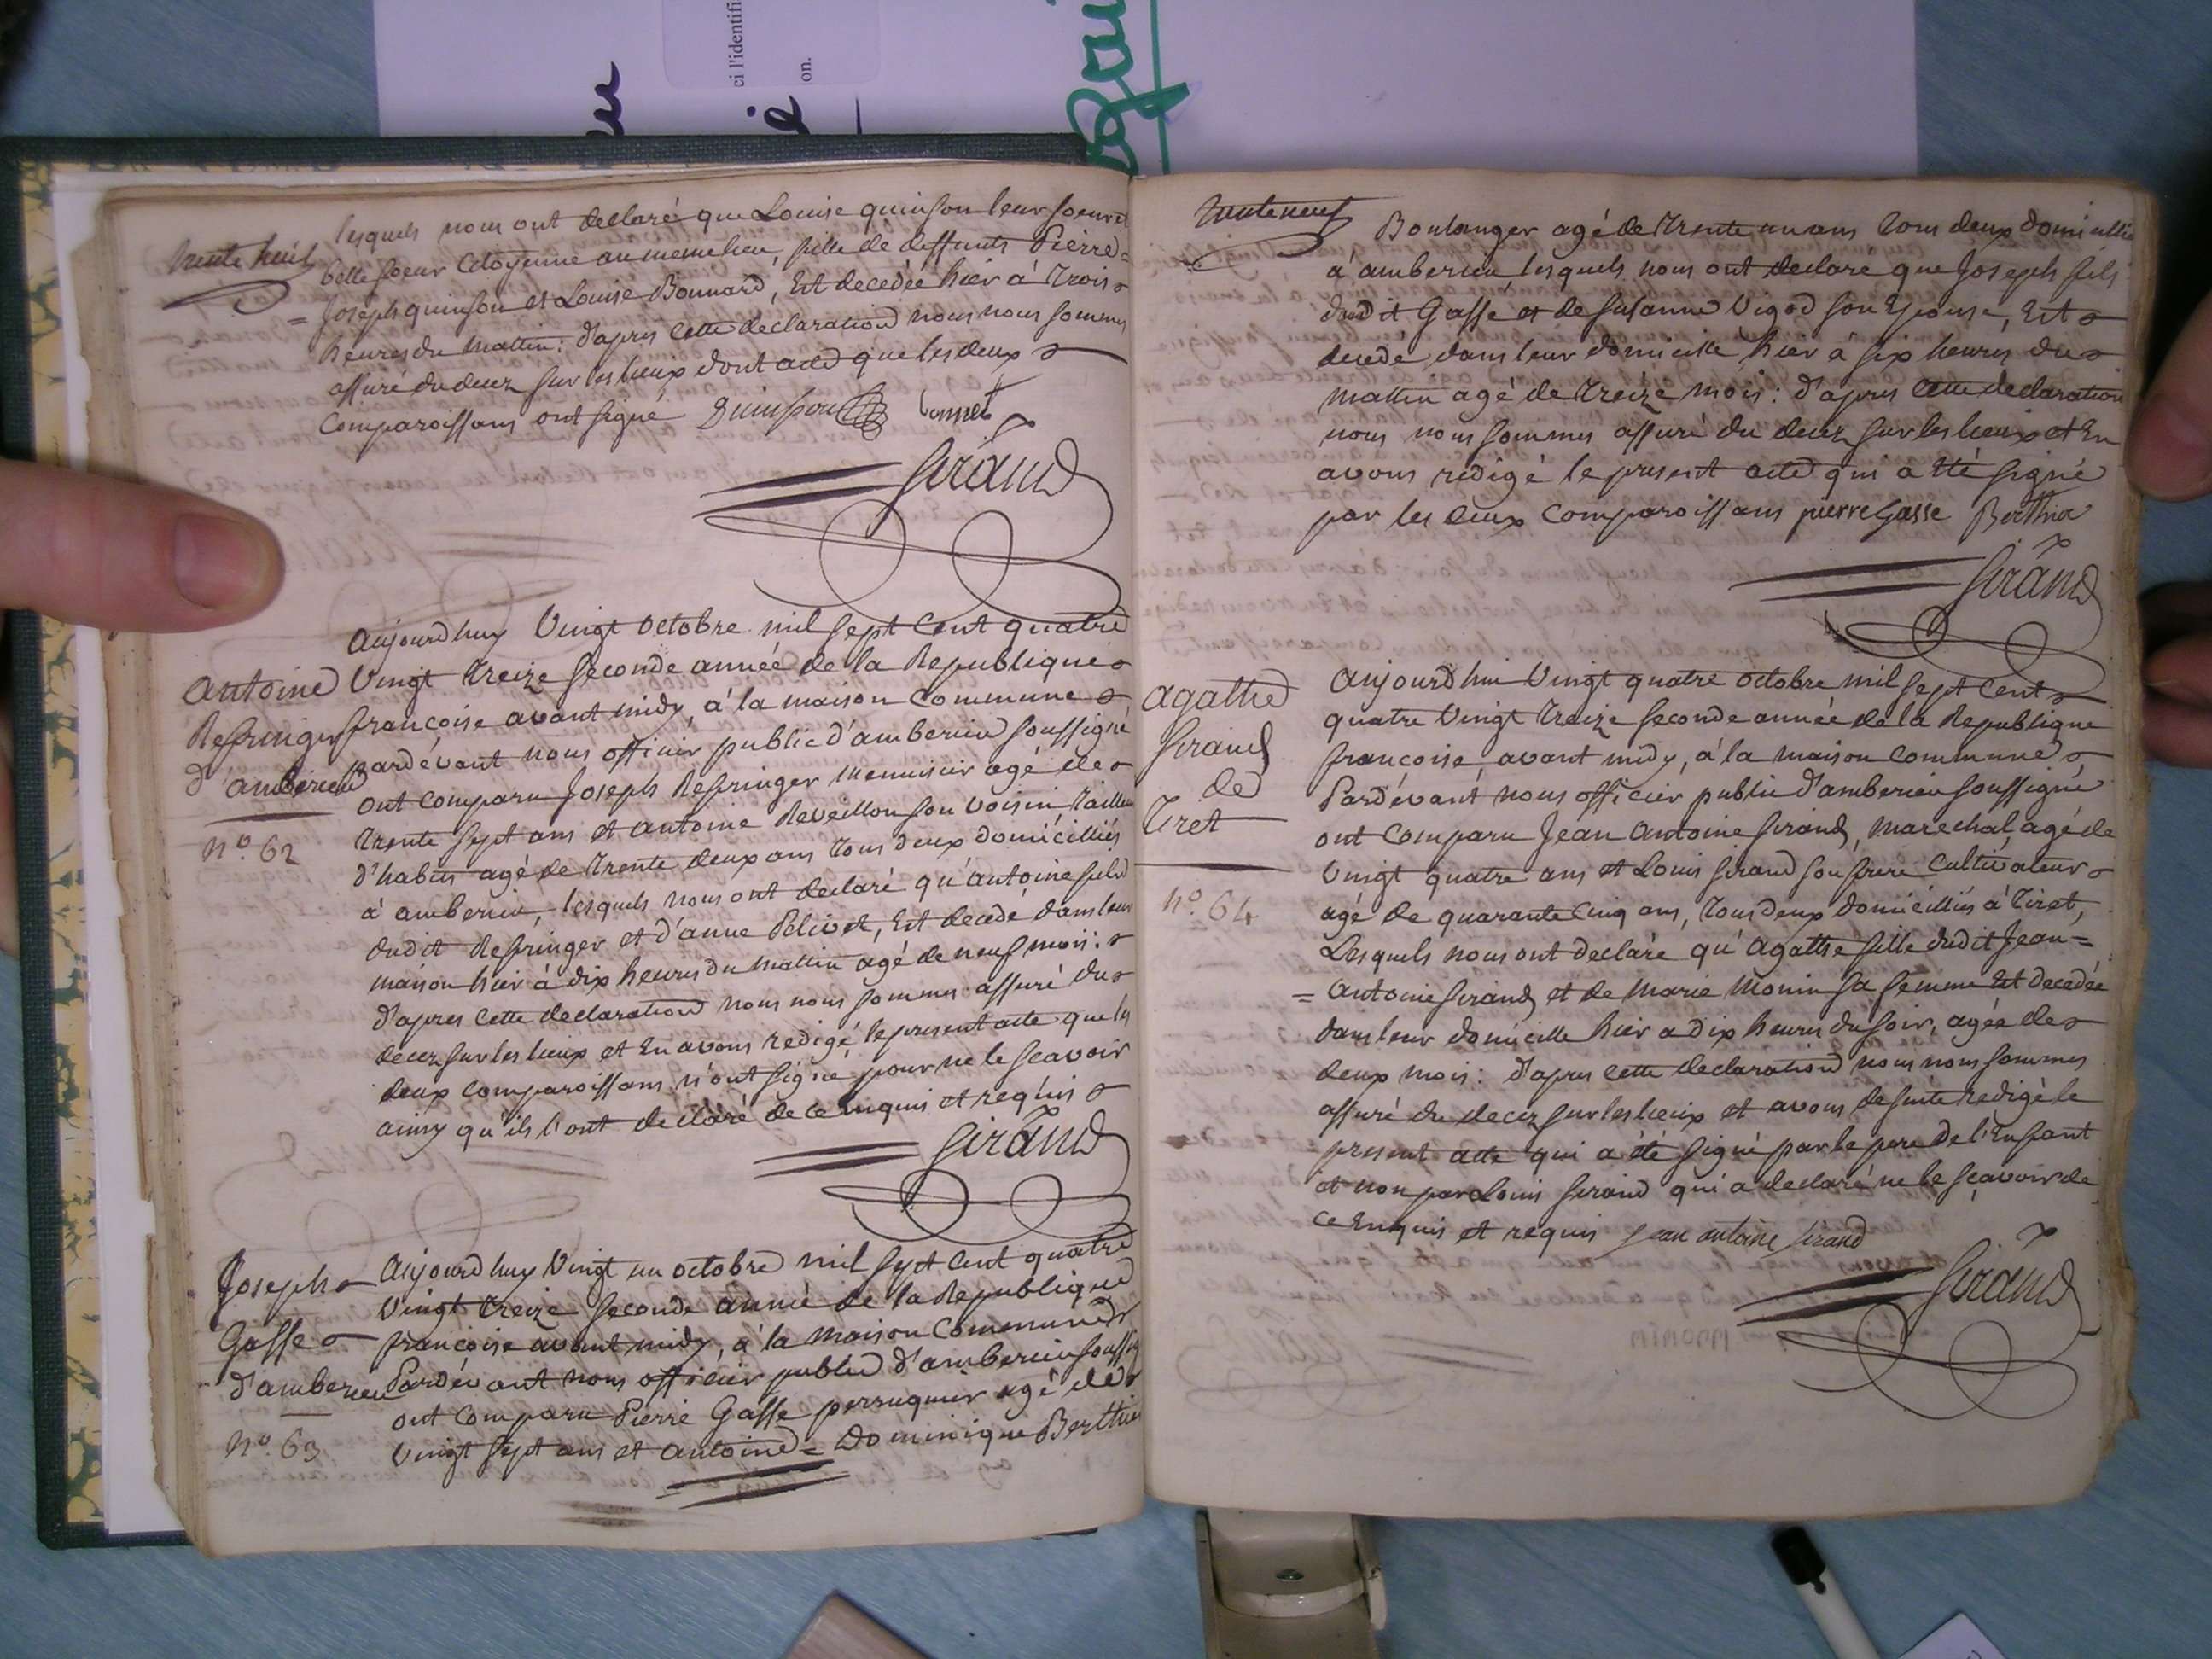 ci l'identifi
on.
trente huit
lesquels nous ont declaré que Louise quinson leur soeur et
belle soeur Citoyenne au meme lieu, fille de deffunts Pierre=
=Joseph quinson et Louise Bonnard, Est decedée hier à trois
heures du mattin: d'apres cette declaration nous nous sommes
assuré du decez sur les lieux dont acte que les deux
Comparoissans ont signé Quinson bonnet
Sirand
Aujourd huy Vingt octobre mil sept Cent quatre
Vingt treize seconde année de la Republique
françoise avant midy, à la maison Commune
pardévant nous officier public d'amberieu soussigné
ont comparu Joseph Refringer menuisier agé de
trente sept ans et antoine Reveillon son voisin tailleur
d'habits agé de trente deux ans tous deux domicilliés
à amberieu, lesquels nous ont declaré qu'antoine fils
dudit Refringer et d'anne Pelivet, Est decedé dans leur
maison hier à dix heures du mattin agé de neuf mois:
d'apres cette declaration nous nous sommes assuré du
decez sur les lieux et En avons redigé le present acte que les
deux comparoissans n'ont signé pour ne le sçavoir
ainsy qu'ils l'ont declaré de ce enquis et requis
Sirand
Antoine
Refringer
d'amberieu
N.o 62
Aujourd huy Vingt un octobre mil sept Cent quatre
Vingt treize seconde année de la Republique
françoise avant midy, à la maison Commune
Pardévant nous officier public d'amberieu soussig
ont comparu Pierre Gasse perruquier agé de
Vingt sept ans et antoine= Dominique Berthier
Joseph
Gasse
d'amberieu
N.o 63
trente neuf
Boulanger agé de trente un ans tous deux domicillié
à amberieu lesquels nous ont declaré que Joseph fils
dudit Gasse et de Susanne Vigod son Epouse, Est
decedé dans leur domicille hier à six heures du
mattin agé de treize mois: d'apres cette declaration
nous nous sommes assuré du decez sur les lieux et En
avons redigé le present acte qui a Eté signé
par les deux Comparoissans pierre Gasse Berthier
Sirand
Agathe
Sirand
de
Tiret
N.o 64
Aujourd hui Vingt quatre octobre mil sept Cent
quatre Vingt treize seconde année de la Republique
françoise, avant midy, à la maison Commune
Pardévant nous officier public d'amberieu soussigné
ont comparu Jean Antoine Sirand, marechal, agé de
Vingt quatre ans et Louis Sirand son frere Cultivateur
agé de quarante Cinq ans, tous deux domicilliés à Tiret,
Lesquels nous ont declaré qu'Agathe fille dudit Jean=
=Antoine Sirand et de Marie Monin sa femme Est decedée
dans leur domicille hier a dix heures du soir, agée de
deux mois: d'apres cette declaration nous nous sommes
assuré du decez sur les lieux et avons de suite redigé le
present acte qui a été signé par le pere de l'Enfant
et non par Louis Sirand qui a declaré ne le sçavoir de
ce Enquis et requis Jean antoine Sirand
Sirand